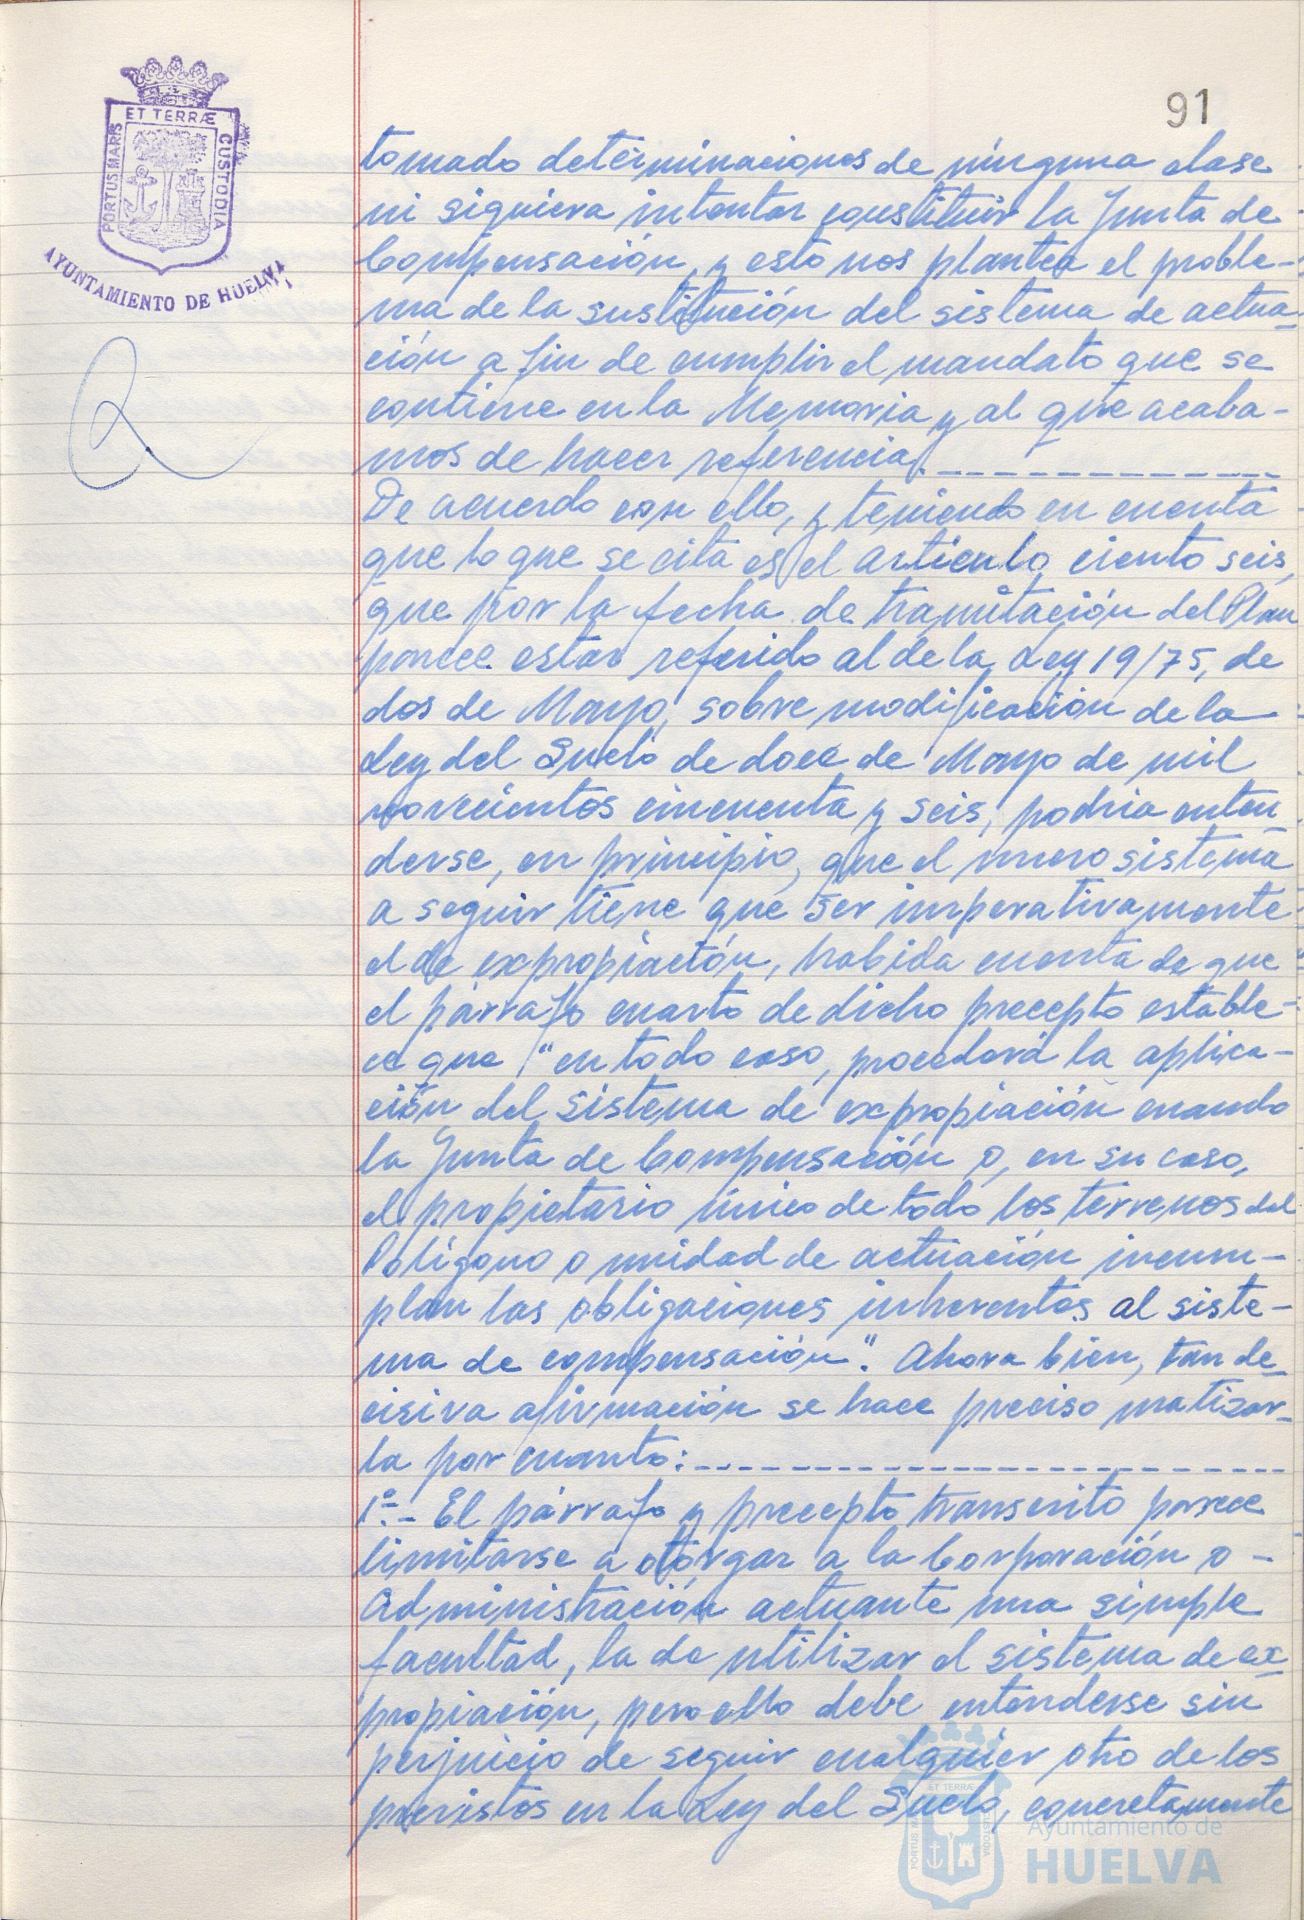 91
ET TERRÆ
PORTUS MARIS
CUSTODIA
AYUNTAMIENTO DE HUELVA
tomado determinaciones de ninguna clase
ni siquiera intentar constituir la Junta de
Compensación, y esto nos plantea el proble-
ma de la sustitución del sistema de actua-
ción a fin de cumplir el mandato que se
contiene en la Memoria y al que acaba-
mos de hacer referencia.
De acuerdo con ello, y teniendo en cuenta
que lo que se cita es el artículo ciento seis,
que por la fecha de tramitación del Plan
parece estar referido al de la Ley 19/75, de
dos de Mayo, sobre modificación de la
Ley del Suelo de doce de Mayo de mil
novecientos cincuenta y seis, podría enten-
derse, en principio, que el nuevo sistema
a seguir tiene que ser imperativamente
el de expropiación, habida cuenta de que
el párrafo cuarto de dicho precepto estable-
ce que "en todo caso, procederá la aplica-
ción del sistema de expropiación cuando
la Junta de Compensación o, en su caso,
el propietario único de todo los terrenos del
Polígono o unidad de actuación incum-
plan las obligaciones inherentes al siste-
ma de compensación". Ahora bien, tan de-
cisiva afirmación se hace preciso matizar-
la por cuanto:
1º.- El párrafo y precepto transcrito parece
limitarse a otorgar a la Corporación o -
Administración actuante una simple
facultad, la de utilizar el sistema de ex-
propiación, pero ello debe entenderse sin
perjuicio de seguir cualquier otro de los
previstos en la Ley del Suelo, concretamente
ET TERRÆ
CUSTODIA
Ayuntamiento de
HUELVA